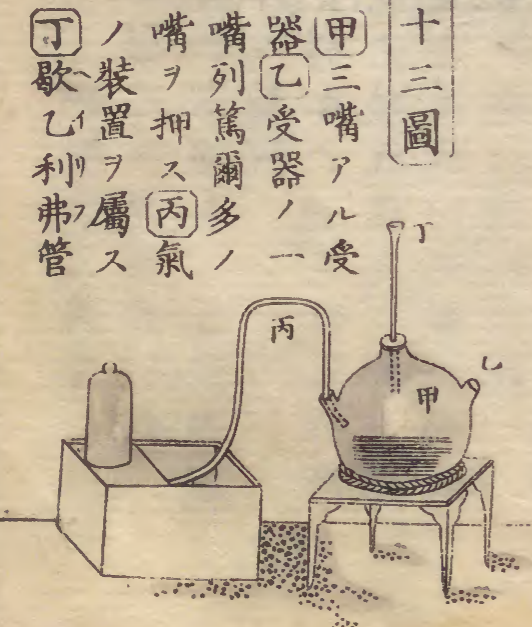 十三圖
甲三嘴アル受
器乙受器ノ一
嘴列篤爾多ノ
嘴ヲ押ス丙氣
ノ装置ヲ屬ス
丁歇乙利弗管
ヘイリフ
丁
丙
甲
乙